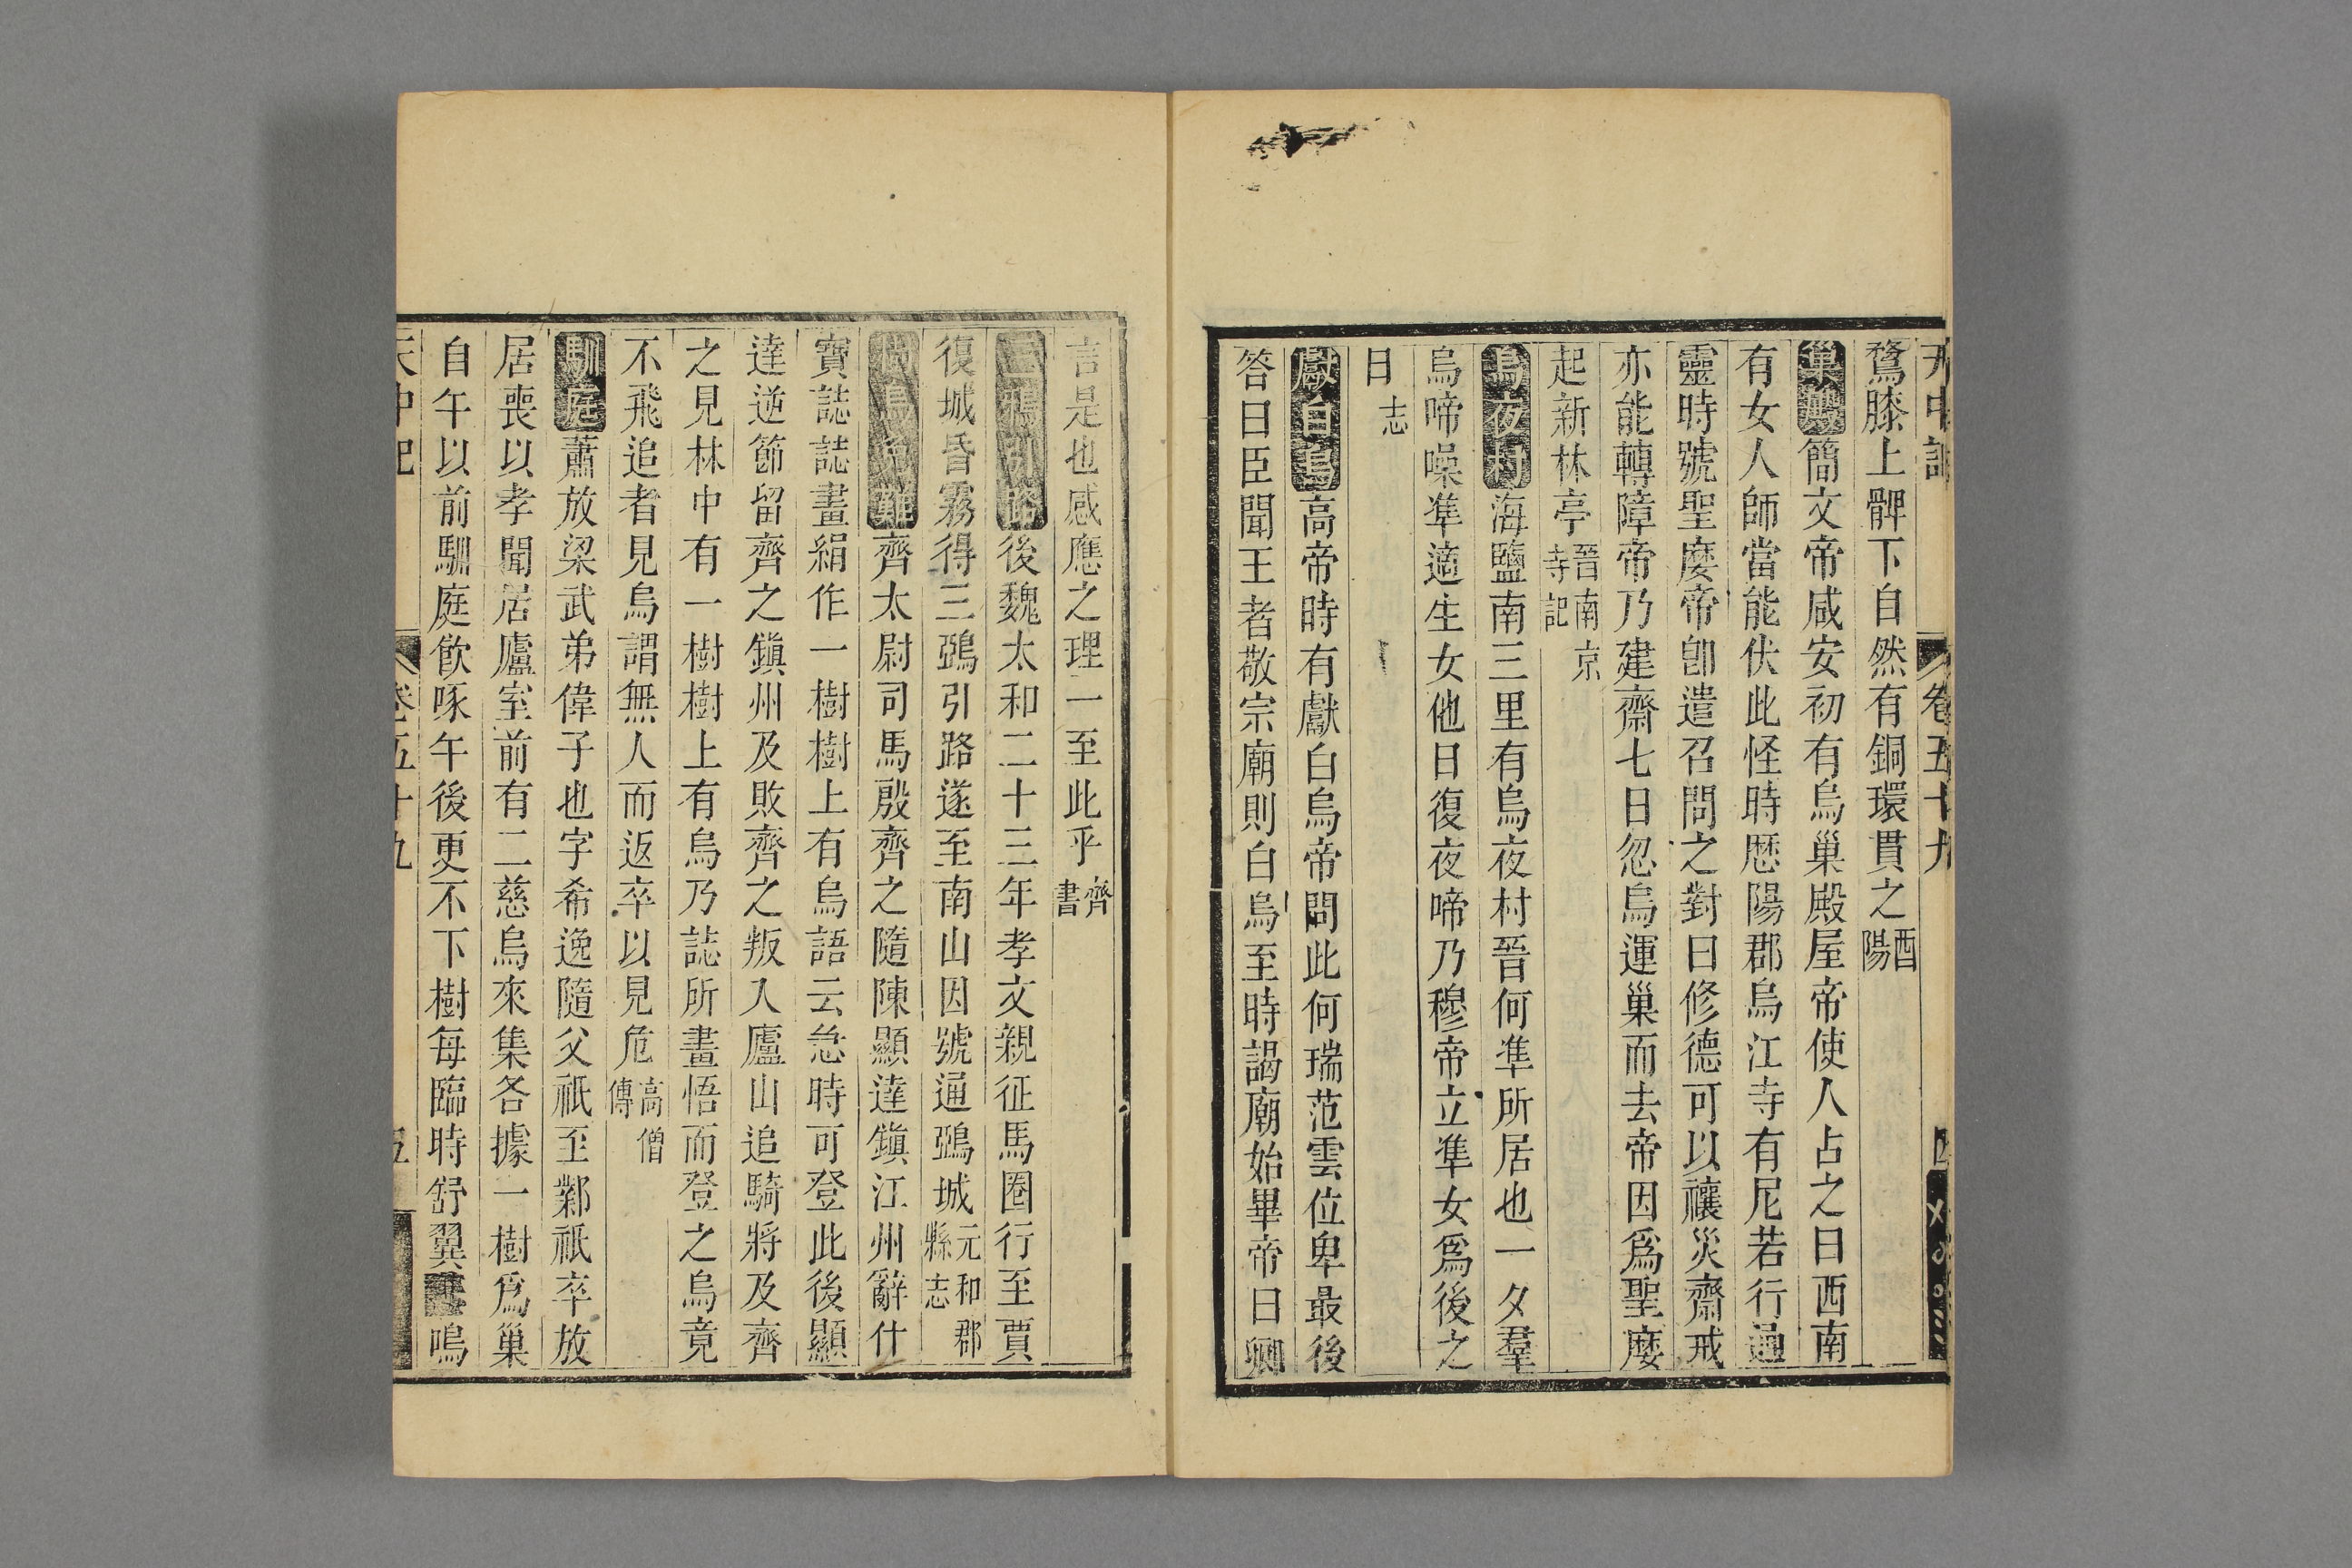 天中記 卷五十九 四
鵞膝上髀下自然有銅環貫之酉陽
巢殿簡文帝咸安初有烏巢殿屋帝使人占之曰西南
有女人師當能伏此怪時歴陽郡烏江寺有尼若行通
靈時號聖麼帝卽遣召問之對曰修德可以禳災齋戒
亦能轉障帝乃建齋七日忽烏運巢而去帝因爲聖麼
起新林亭晉南京寺記
烏夜村海鹽南三里有烏夜村晉何準所居也一夕羣
烏啼噪準適生女他日復夜啼乃穆帝立準女爲後之
日志
獻白烏高帝時有獻白烏帝問此何瑞范雲位卑最後
答曰臣聞王者敬宗廟則白烏至時謁廟始畢帝曰卿
言是也感應之理一至此乎齊書
三鵶引路後魏太和二十三年孝文親征馬圈行至賈
復城昏霧得三鵶引路遂至南山因號通鵶城元和郡縣志
烏免難齊太尉司馬殷齊之隨陳顯達鎭江州辭什
寶誌誌畫絹作一樹樹上有烏語云急時可登此後顯
達逆節留齊之鎭州及敗齊之叛入廬山追騎將及齊
之見林中有一樹樹上有烏乃誌所畫悟而登之烏竟
不飛追者見烏謂無人而返卒以見危高僧傳
馴庭蕭放梁武弟偉子也字希逸隨父祇至鄴祇卒放
居喪以孝聞居廬室前有二慈烏來集各據一樹爲巢
自午以前馴庭飮啄午後更不下樹每臨時舒翼鳴
天中記 卷五十九 五